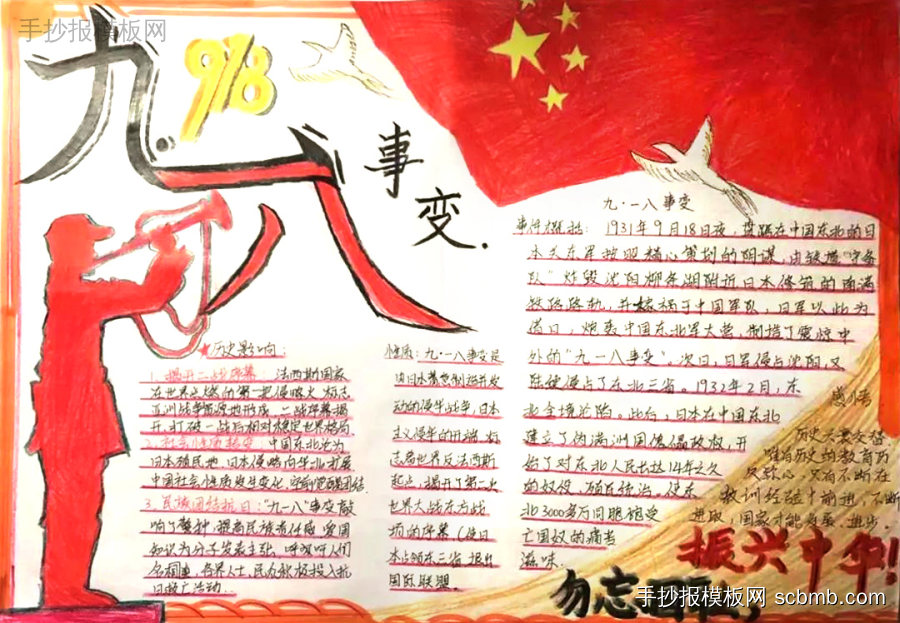 手抄报模板网
九一八
918
事
变.
九·一八事变
事件概括: 1931年9月18日夜, 盘踞在中国东北的日
本关东军按照精心策划的阴谋, 由铁道"守备
队"炸毁沈阳柳条湖附近日本修筑的南满
铁路路轨, 并嫁祸于中国军队, 日军以此为
借口, 炮轰中国东北军大营, 制造了震惊中
外的"九一八事变". 次日, 日军侵占沈阳, 又
陆续侵占了东北三省. 1932年2月, 东
北全境沦陷. 此后, 日本在中国东北
建立了伪满洲国傀儡政权, 开
始了对东北人民长达14年之久
的奴役
统治, 使东
北3000多万同胞饱受
亡国奴的痛苦
滋味.
历史影响:
1. 揭开二战序幕: 法西斯国家
开, 打破一战后相对稳定世界格局.
中国东北沦为
日本殖民地, 日本侵略向华北扩展.
中国社会性质发生变化
3. 民族团结抗日: "九一八"事变敲
响了警钟, 提高民族责任感, 爱国
知识分子发表主张, 呼吁人们
各界人士, 民众积极投入抗
日救亡活动...
性质: 九·一八事变是
由日本蓄意制造并发
动的侵华战争, 日本
主义侵华的开端, 标
志着世界反法西斯
起点, 揭开了第二次
世界大战东方战
场的序幕
东三省, 退出
国际联盟.
感悟
历史
唯有历史的教育
只有不断在
教训经验中前进, 不断
进取, 国家才能发展, 进步.
振兴中华!
勿忘国
手抄报模板网 scbmb.com